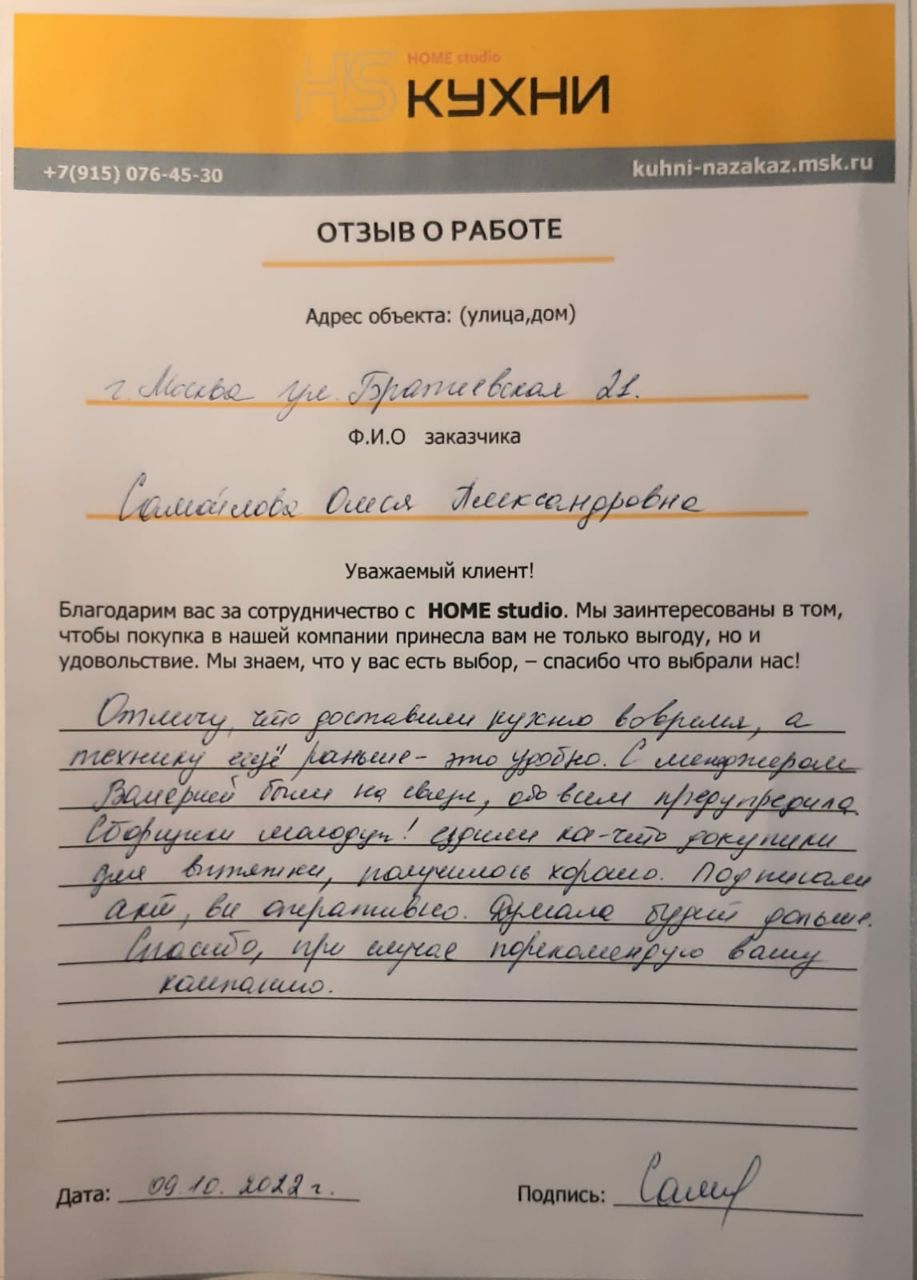 HS HOME studio
КУХНИ
+7(915) 076-45-30 kuhni-nazakaz.msk.ru
ОТЗЫВ О РАБОТЕ
Адрес объекта: (улица,дом)
г. Москва ул. Братиевская 21.
Ф.И.О заказчика
Самойлова Олеся Александровна
Уважаемый клиент!
Благодарим вас за сотрудничество с HOME studio. Мы заинтересованы в том,
чтобы покупка в нашей компании принесла вам не только выгоду, но и
удовольствие. Мы знаем, что у вас есть выбор, – спасибо что выбрали нас!
Отмечу, что доставили кухню вовремя, а
технику ещё раньше - это удобно. С менеджером
Валерией были на связи, обо всем предупредила.
Сборщики молодцы! ездили ка-что докупили
для вытяжки, получилось хорошо. Подписали
акт, все оперативно. Думала будет дольше.
Спасибо, при случае порекомендую вашу
компанию.
Дата: 09.10.2022 г. Подпись: